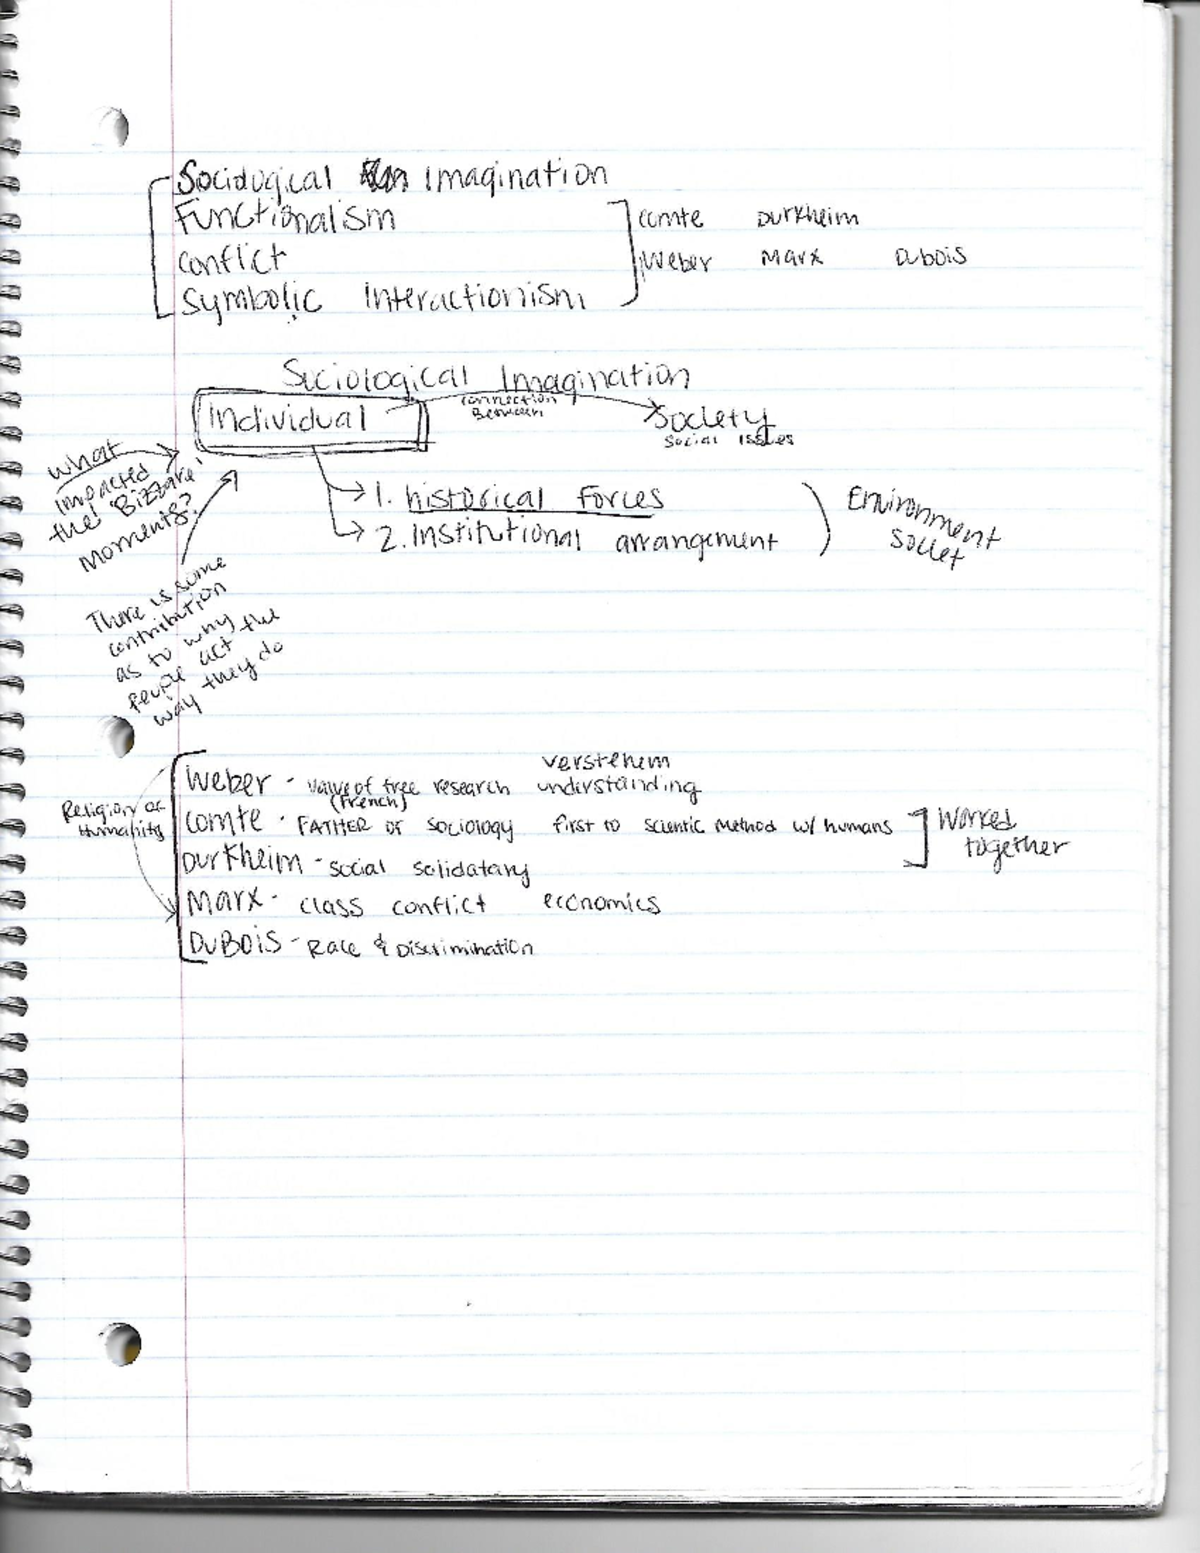 Sociological Imagination
Functionalism
Conflict
Symbolic Interactionism
Comte Durkheim
Weber Marx Dubois
Sociological Imagination
Individual
connection
Between
Society
Social Issues
What
impacted
the 'Bizzare'
Moments?
1. historical Forces
2. Institutional arrangement
Environment
Societ
There is some
contribution
as to why
people act the
way they do
verstehem
Weber - value of free research understanding
(French)
Comte - FATHER OF Sociology first to scientic method w/ humans
Durkheim - social solidatary
Worked
together
Religion of
Humanity
Marx - class conflict economics
DuBois - Race & Discrimination